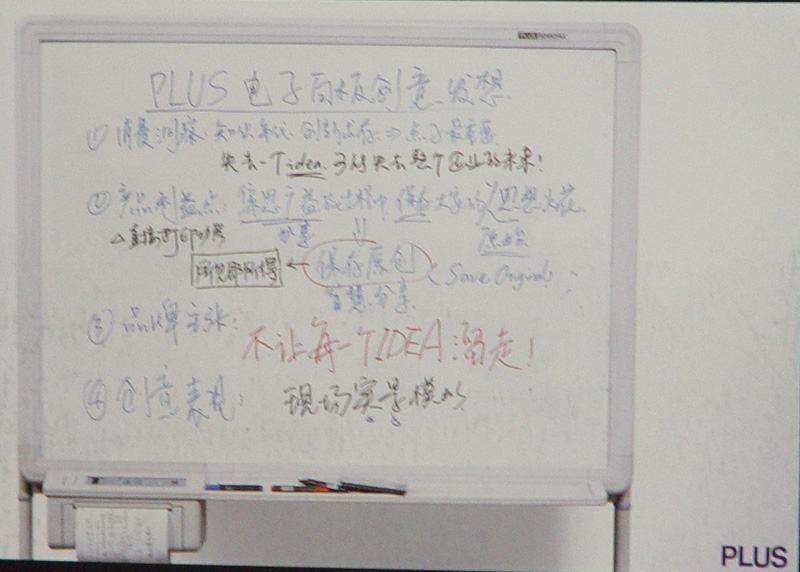 PLUS 电子白板创意发想
① 消费洞察: 知识年代、创新求存 ⇒ 点子最重要
失去一个idea. 可能失去整个企业的未来!
② 产品利益点: 集思广益的过程中 保存大家的思想火花
△直接打印功能 分享 ⇓ 原始
所见即所得 ← 保存原创 (Save Original)
智慧分享
③ 品牌主张:
不让每一个IDEA溜走!
④ 创意表现: 现场实景模拟
PLUS